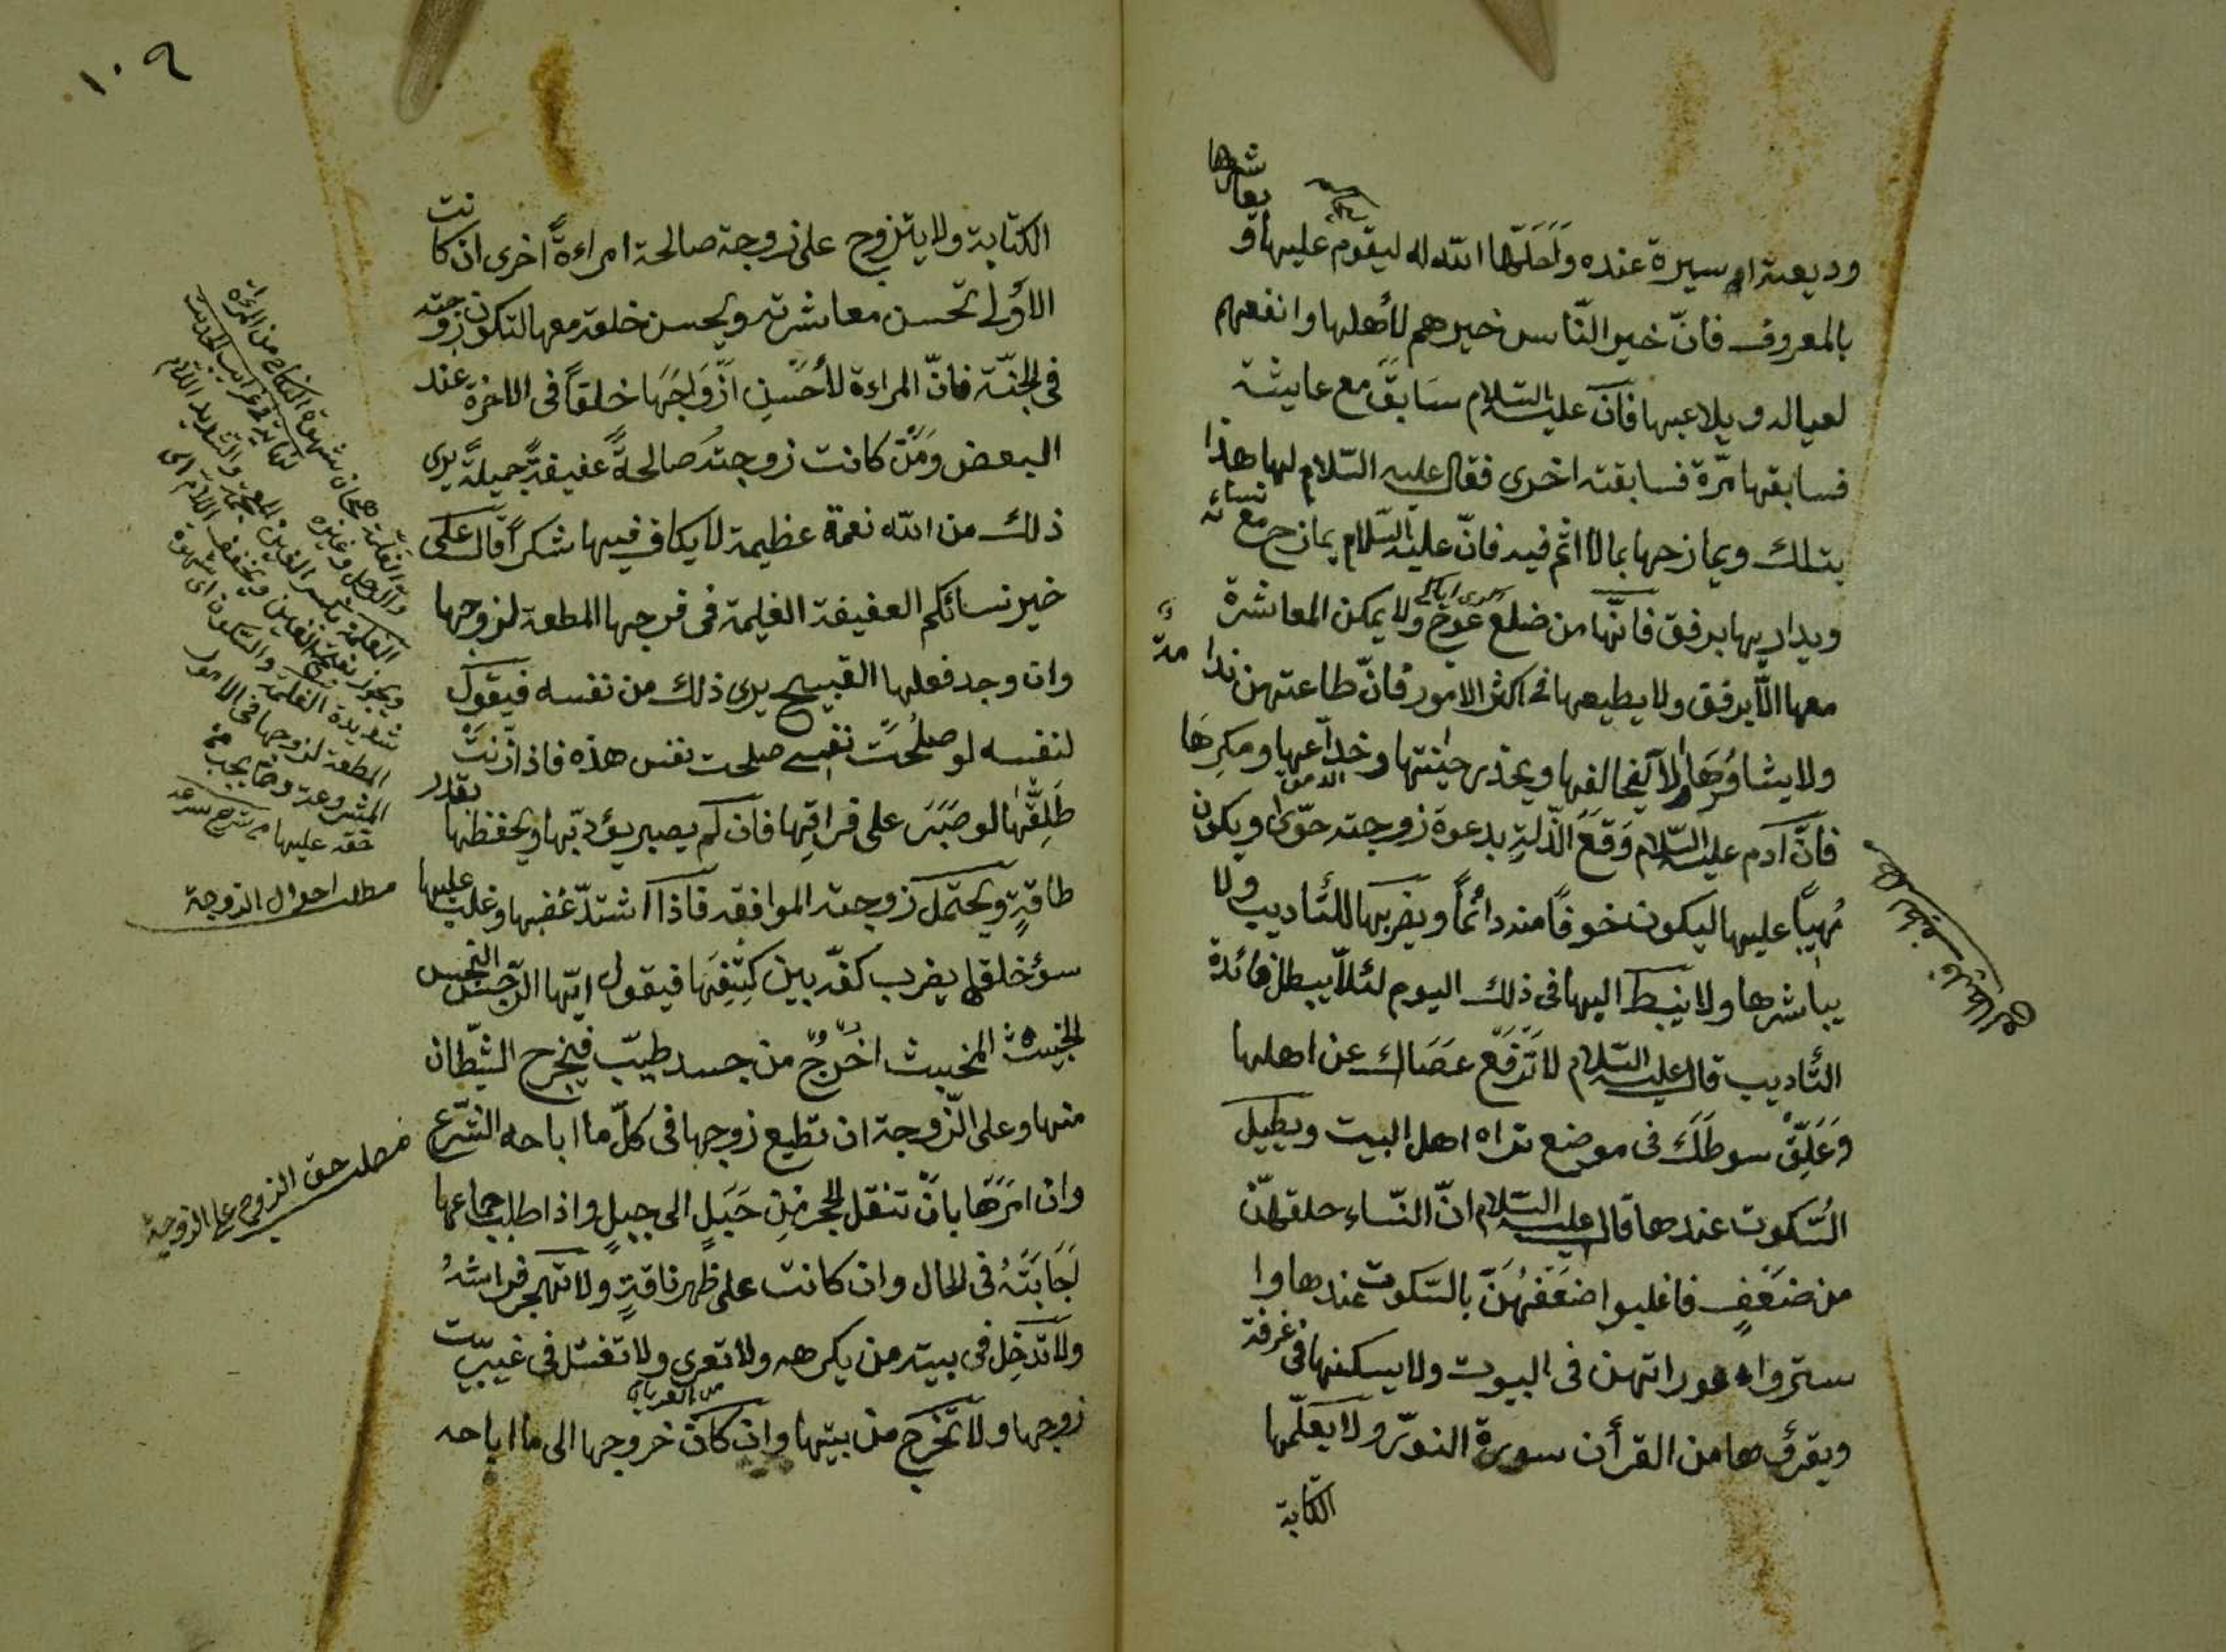 وديعة اسيرة عنده واحلّها الله له ليقوم عليها و يعاشرها
بالمعروف فانّ خير النّاس خيرهم لأهلها وانفعهم
لعياله ويلاعبها فانّه عليه السّلام سَابَقَ مع عايشة
فسابقها مرّة فسابقته اخرى فقال عليه السّلام لها هذا
بتلك ويمازحها بما لا اثم فيه فانّ عليه السّلام يمازح مع نسائه
ويداريها برفق فانّها من ضلع عوج ولا يمكن المعاشرة
معها الّا برفق ولا يطيعها فى اكثر الامور فانّ طاعتهن ندامة
ولا يشاورها الا ليخالفها ويحذر خيانتها وخداعها ومكرها
فانّ آدم عليه السّلام وَقَعَ الذّلة بدعوة زوجته حوّى ويكون
مُهيبًا عليها ليكون خوفًا منه دائمًا ويضربها للتأديب ولا
يباشرها ولا ينبسط اليها فى ذلك اليوم لئلّا يبطل فائدة
التأديب قال عليه السّلام لا تَرفَع عصَاك عن اهلها
وَعَلِّق سوطَكَ فى موضع تراه اهل البيت ويطيل
السّكوت عندها قال عليه السّلام انّ النّساء خلقهنّ
من ضَعْفٍ فاغلبوا ضعفَهُنّ بالسّكوت عندها وا
ستروا عوراتهن فى البيوت ولا يسكنها فى غرفة
ويقرؤها من القرأن سورة النور ولا يعلّمها
الكتابة
١٠٩
الكتابة ولا يتزوج على زوجة صالحة امراءةً اخرى ان كانت
الأولى تحسن معاشرته ويحسن خلقه معها لتكون زوجته
فى الجنّة فانّ المراءة لأَحْسَنِ ازْوَاجِهَا خلقاً فى الاخرة عند
البعض وَمَنْ كانت زوجته صالحةً عفيفةً جميلةً يرى
ذلك من الله نعمة عظيمة لا يكافى فيها شكراً قال عليه
خير نسائكم العفيفة الغليمة فى فرجها المطعة لزوجها
وان وجد فعلها القبيح يرى ذلك من نفسه فيقول
لنفسه لو صلُحَت نفسي صلحت نفس هذه فاذا زنَتْ
طَلِّقها لو صَبَرَ على فراقِها فان لم يصبر يؤدّبها ويحفظها بقدر
طاقةٍ ويحتمل زوجته الموافقة فاذا اشتدّ غضبها وغلب عليها
سؤ خلقها يضرب كفّه بين كتِفَيها فيقول ايّها الرّجس النجس
الخبيث المخبيث اخرُجْ من جسد طيّب فيخرج الشّيطان
منها وعلى الزّوجة ان تطيع زوجها فى كلّ ما اباحه الشّرع
وان امَرَها بانْ تنقل الحجر من جَبَلٍ الى جبلٍ واذا طلب جماعها
اَجَابَتْهُ فى الحال وان كانت على ظهر ناقةٍ ولا تهجر فراشهُ
ولا تدخِل فى بيته من يكرهه ولا تعرى ولا تغتسل فى غيبت
زوجها ولا تخرج من بيتها وان كان خروجها الى ما اباحه
والغلمة هيجان شهوة النكاح من المرأة
والرجل وغيره
مطلب احوال الزوجة
مطلب حق الزوج على الزوجة